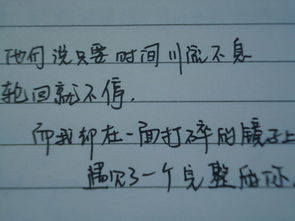 他们说只要时间川流不息
轮回就不停.
而我却在一面打碎的镜子上
遇见了一个完整的你.